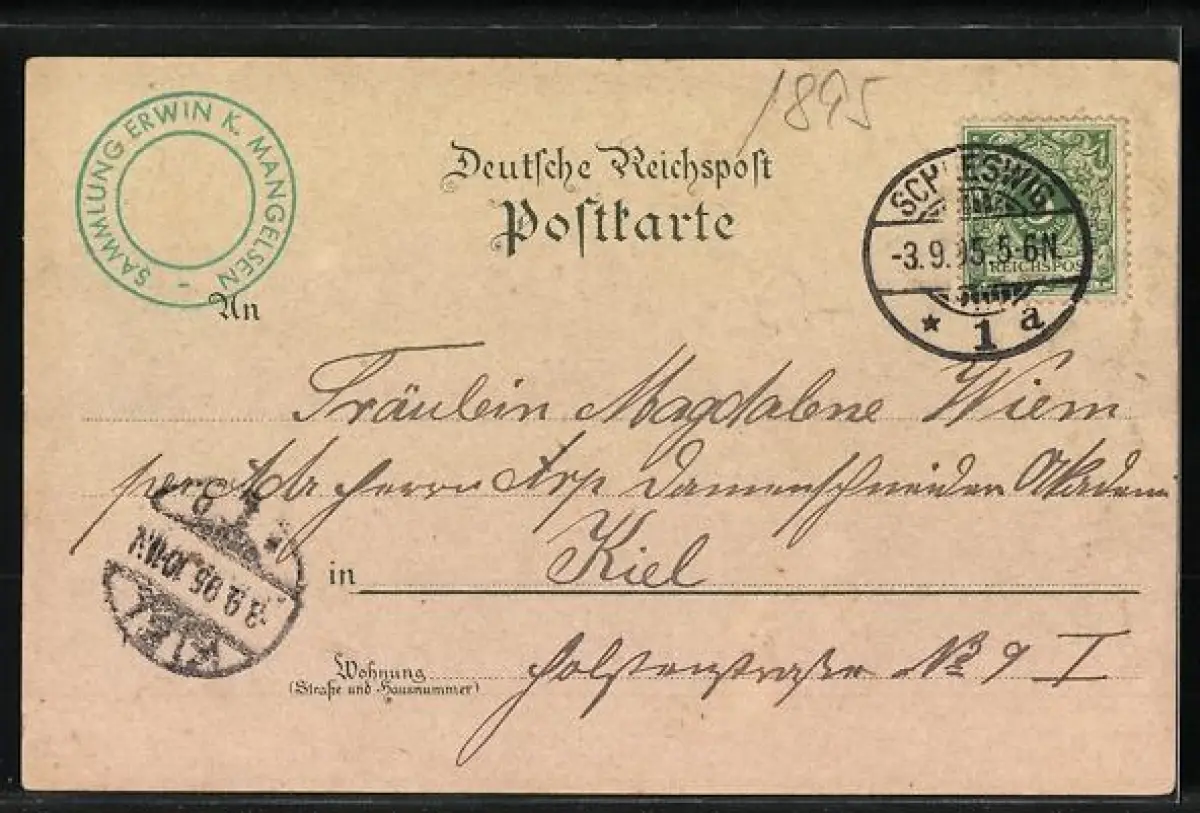 1895
SAMMLUNG ERWIN K. MANGELSEN -
Deutsche Reichspost
Postkarte
SCHLESWIG
-3.9.95.5-6N.
* 1 a
REICHSPOST
An
Fräulein Magdalene Wiem
per Adr Herrn Arp Damenschneider Akadem
in Kiel
KIEL
-3.9.95.10-11N
Wohnung
(Straße und Hausnummer)
Holstenstraße No 9 I